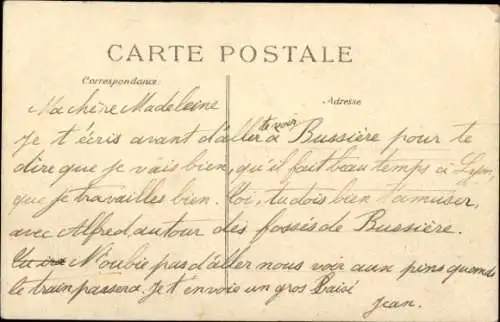 CARTE POSTALE
Correspondance.
Adresse
Ma chère Madeleine
te voir
Je t'écris avant d'aller à Bussière pour te
dire que je vais bien, qu'il fait beau temps à Lyon,
que je travailles bien. Toi, tu dois bien t'amuser,
avec Alfred, autour des fossés de Bussière.
N'oubie pas d'aller nous voir aux pins quand
le train passera. Je t'envoie un gros Baisé
Jean.